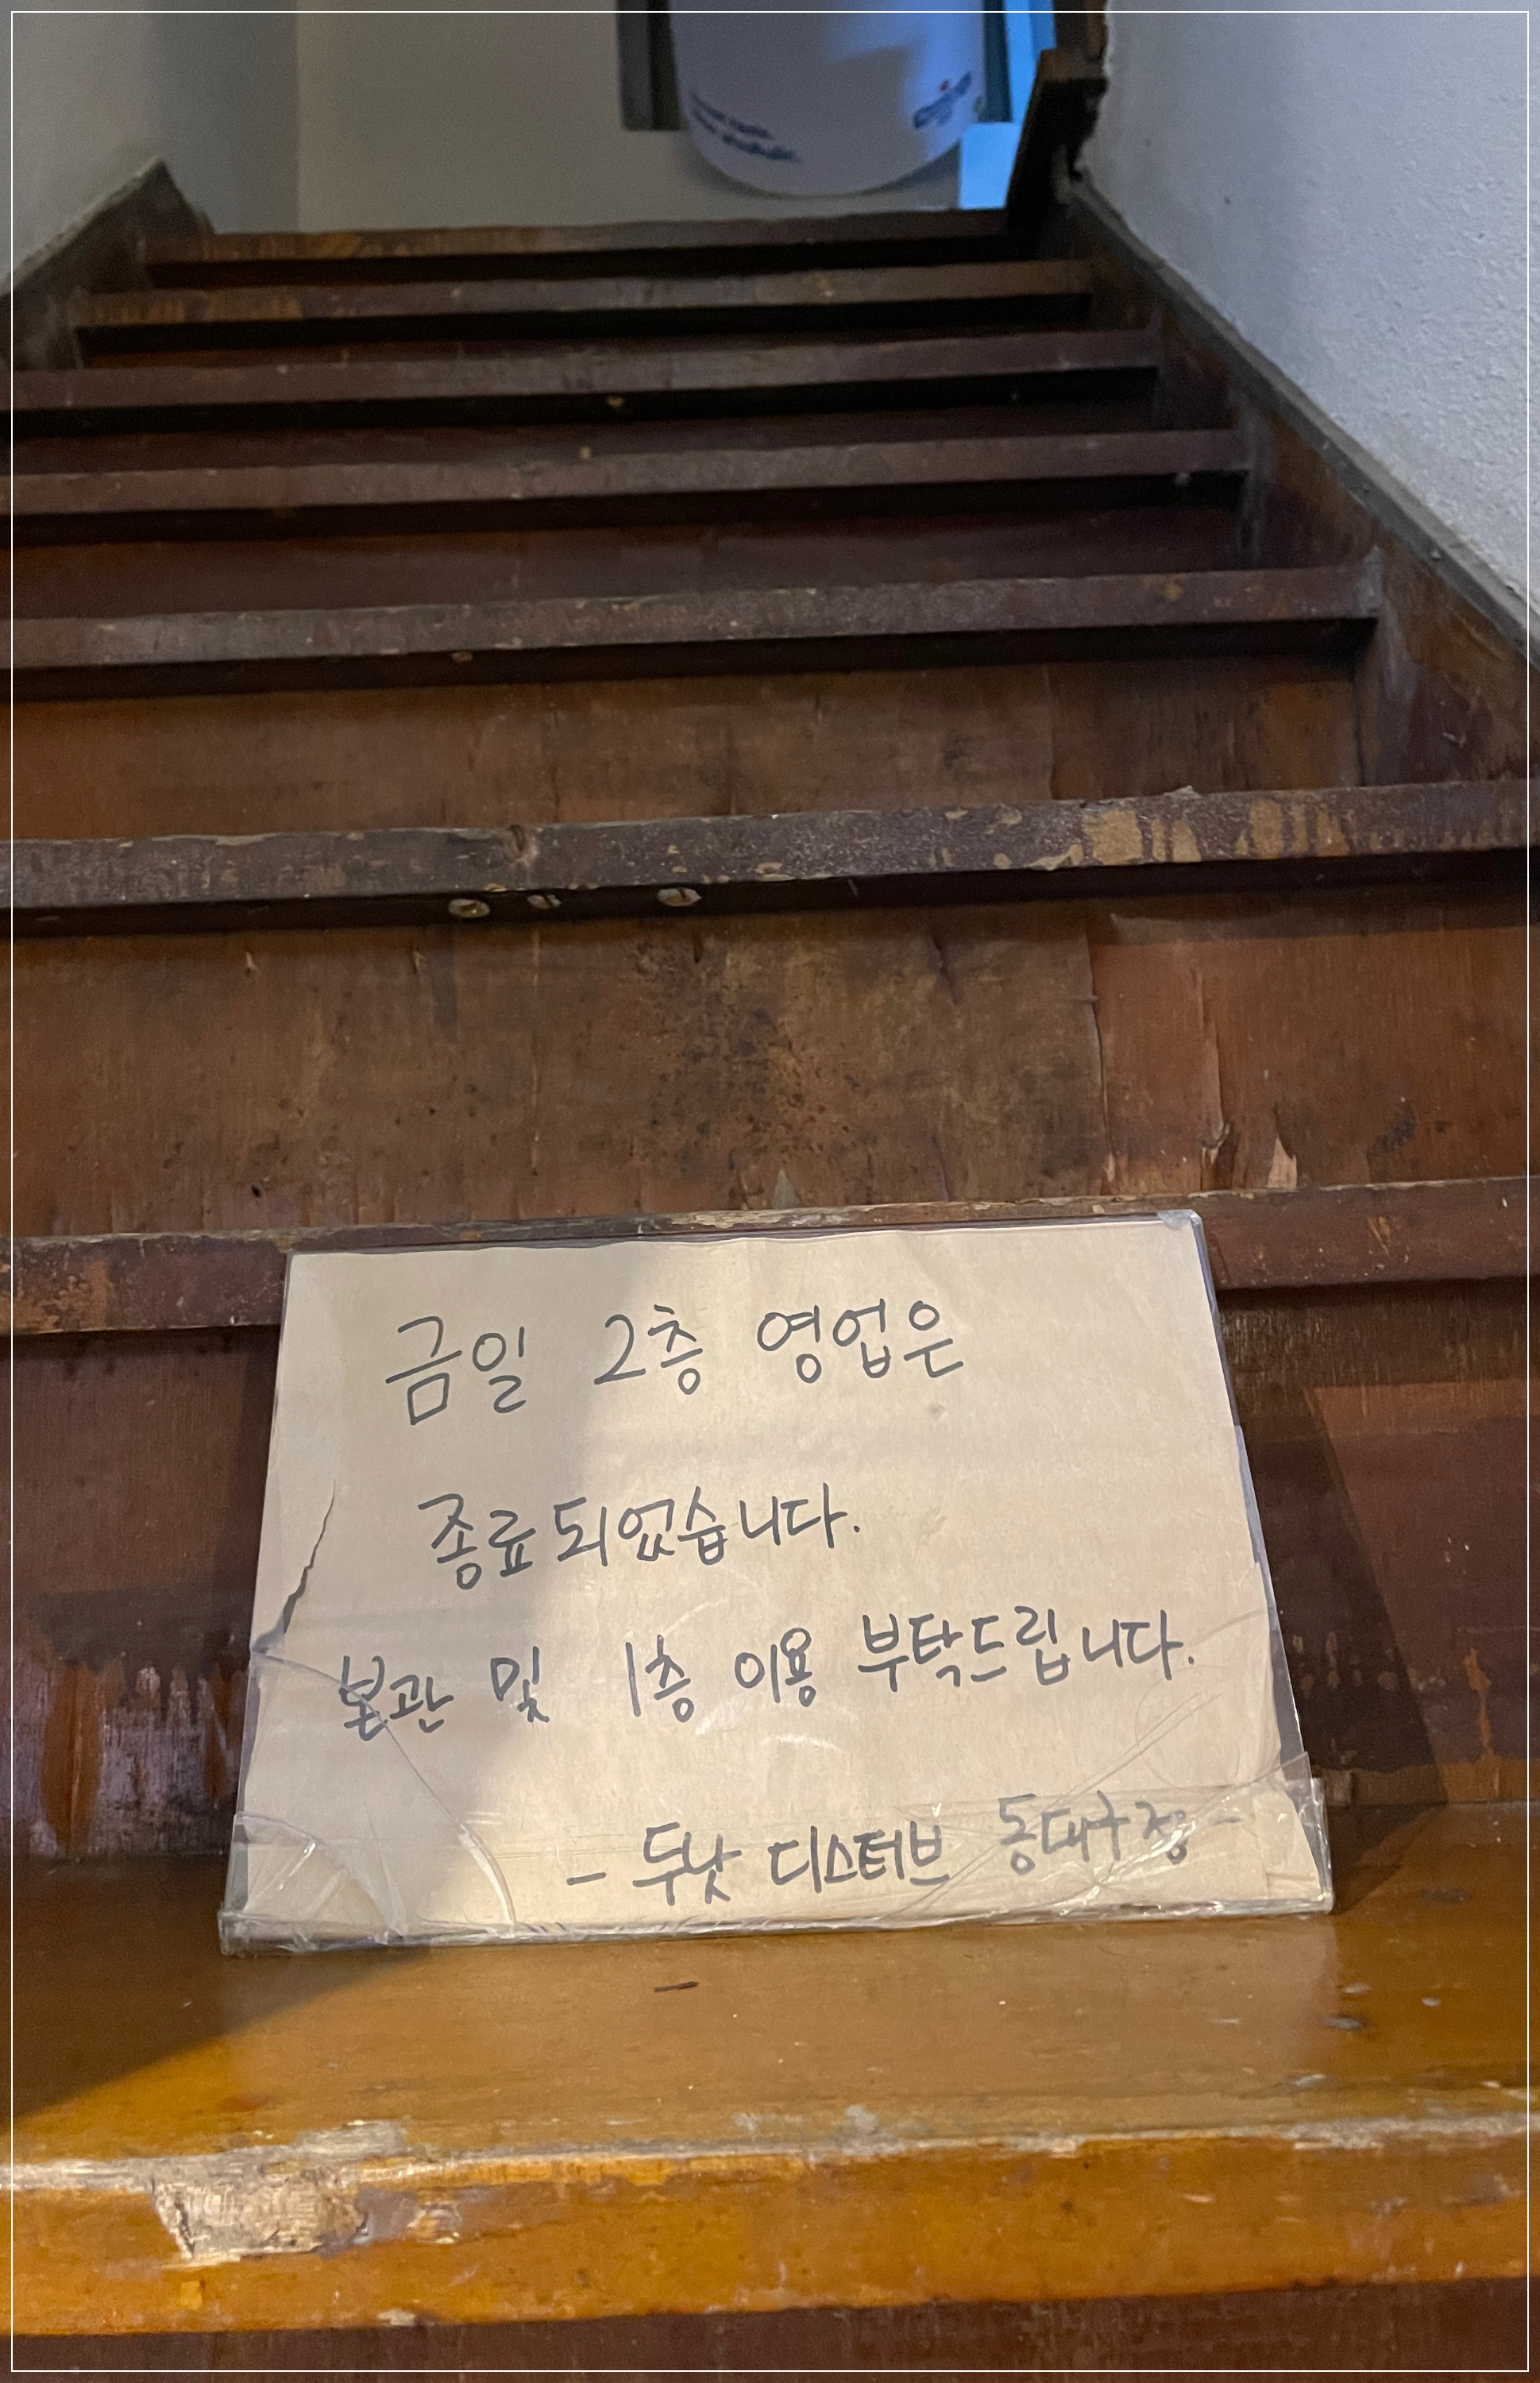 금일 2층 영업은
종료되었습니다.
본관 및 1층 이용 부탁드립니다.
- 두낫 디스터브 동대구점 -